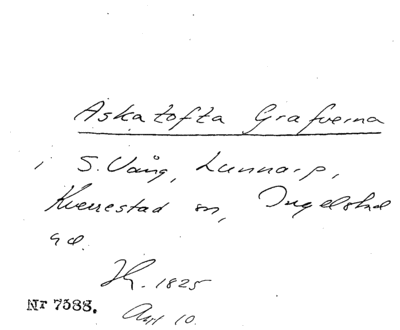 Askatofta Grafverna
i S. Vång, Lunnarp,
Kverrestad sn, Ingelstad
hd.
1825
Nr 7588. Aut 10.